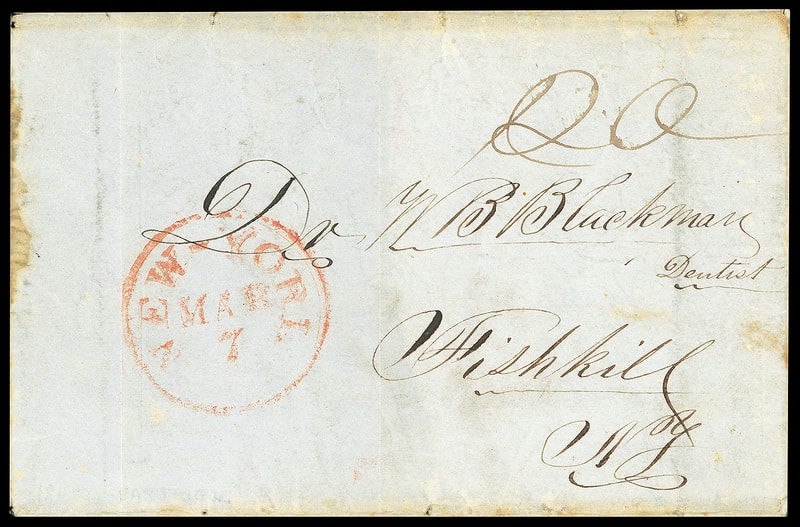 20
Dr W B Blackman
Dentist
Fishkill
NY
NEW YORK
MAR
7